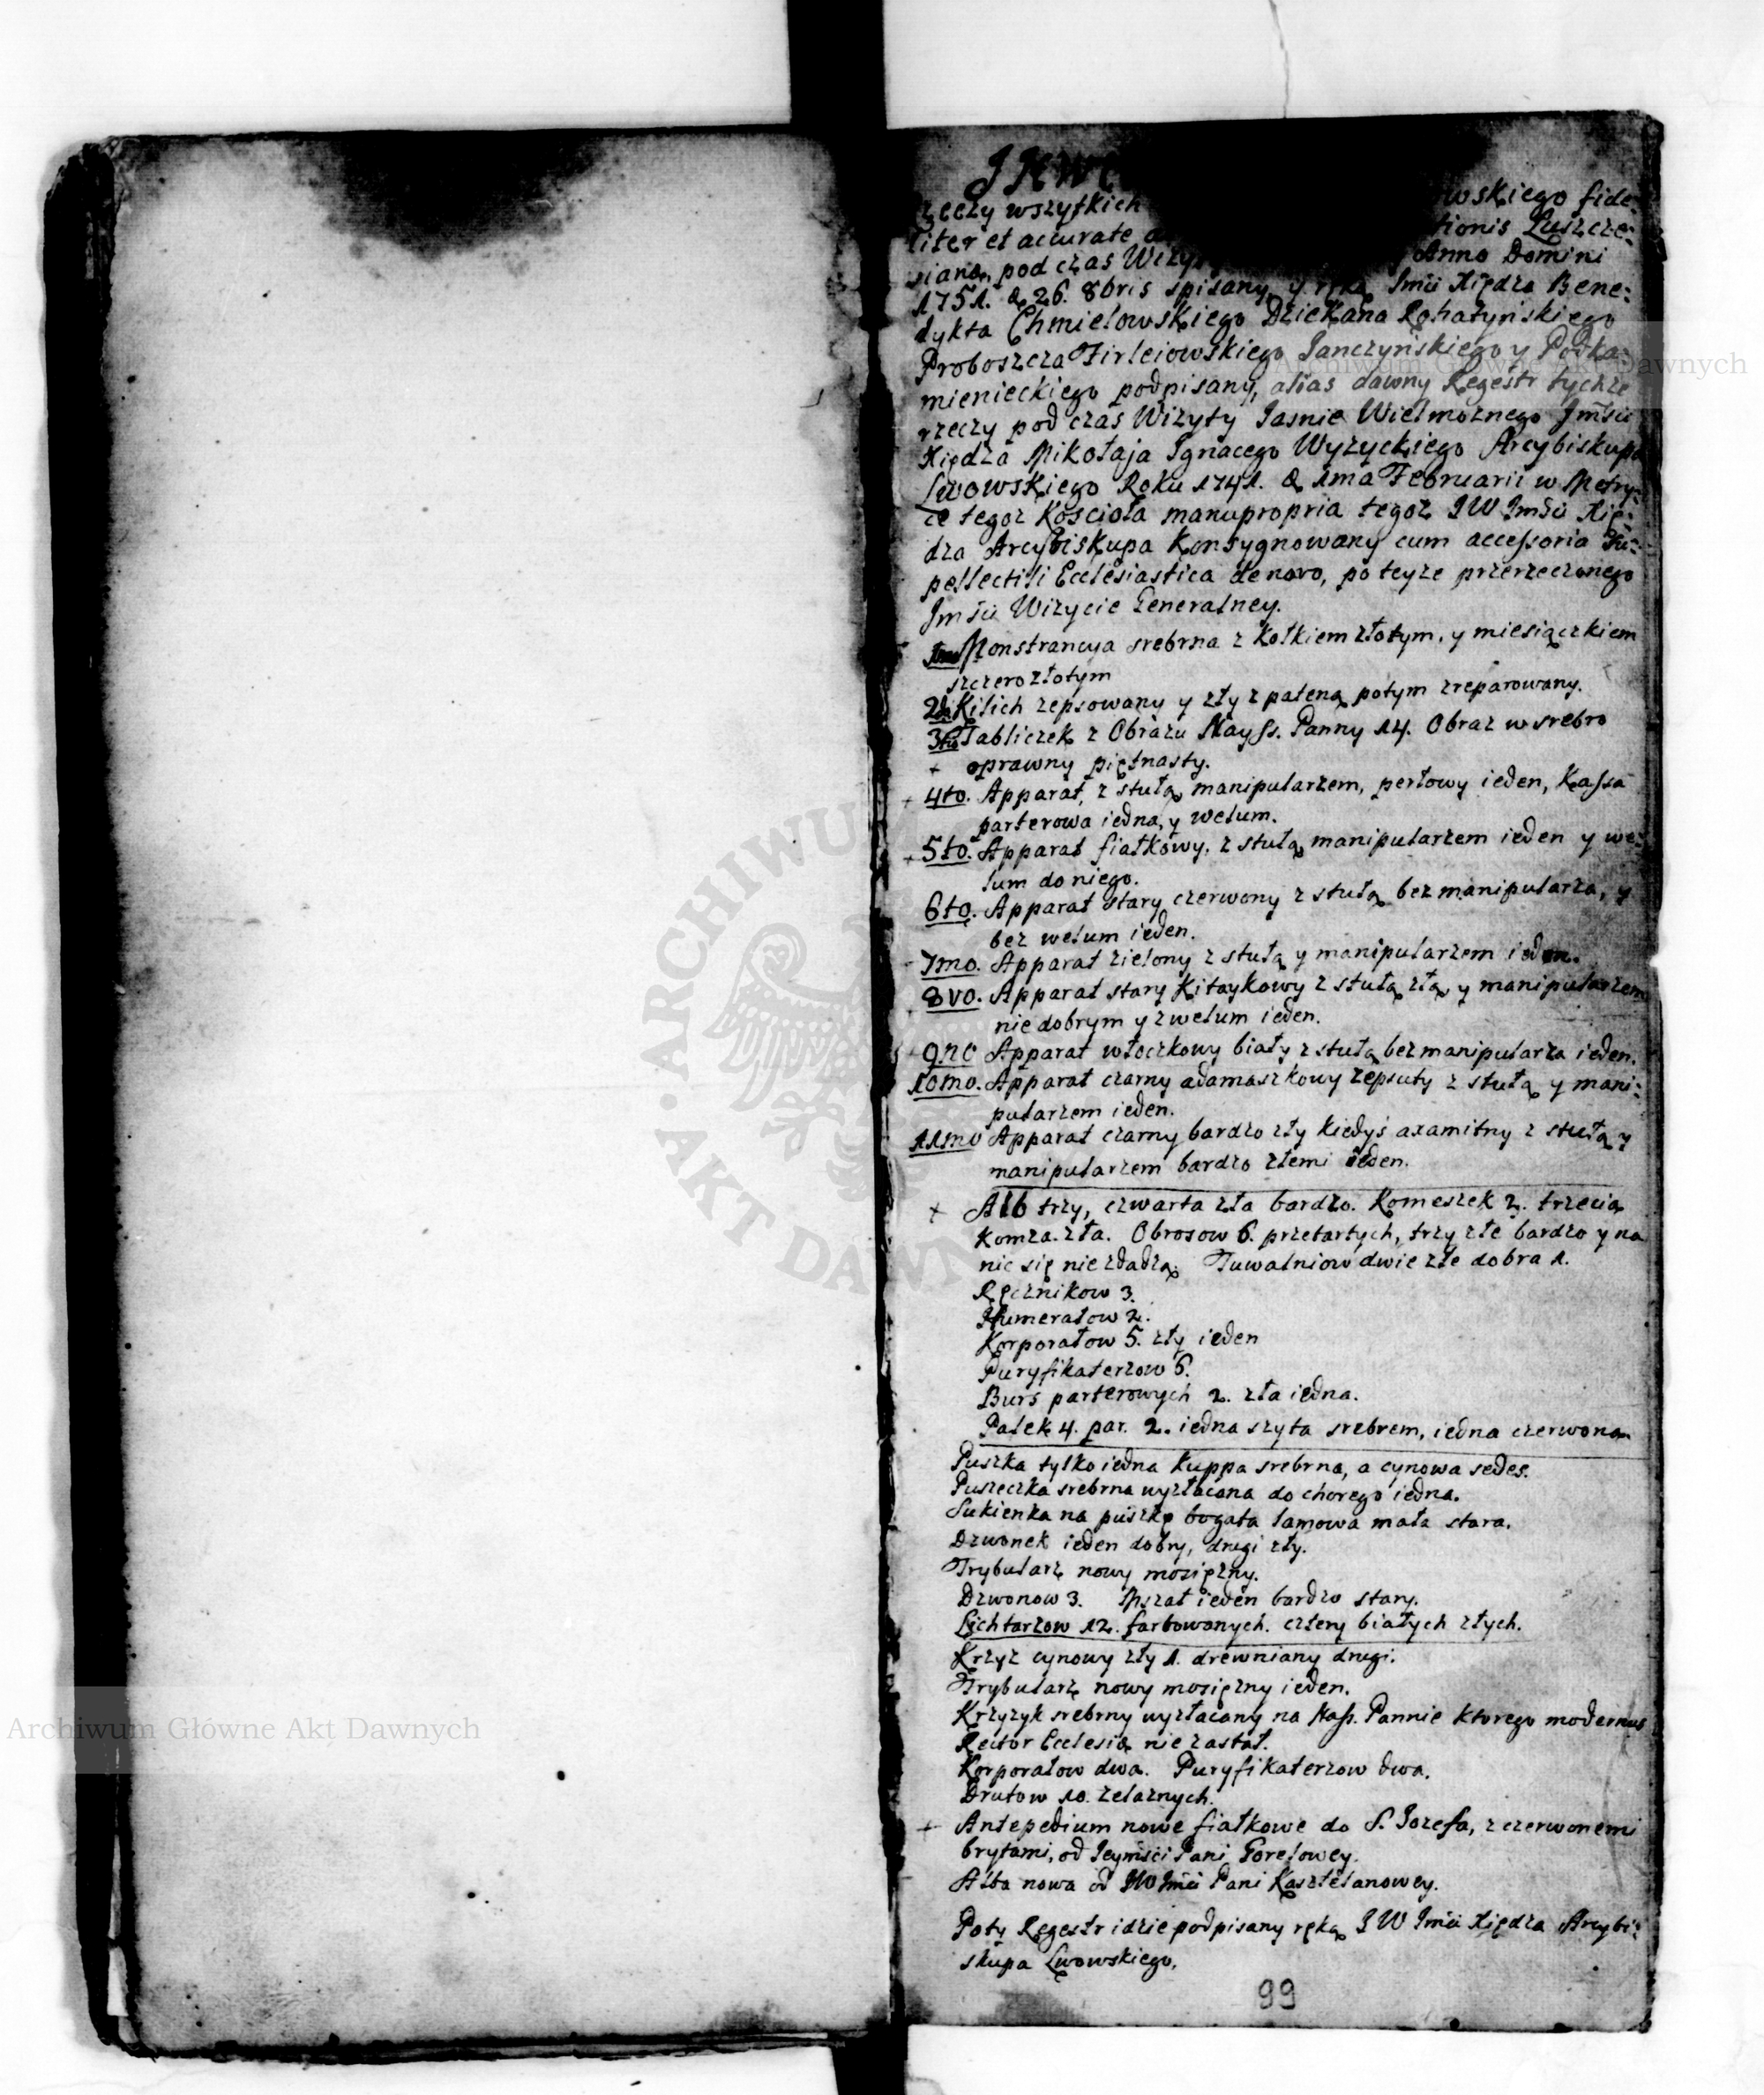 rzeczy wszytkich wskiego fide:
liter et accurate tionis Luszcze:
siana, pod czas Wizy Anno Domini
1751. d. 26. 8bris spisany, y ręką Jmći Xiędza Bene:
dykta Chmielowskiego Dziekana Rohatyńskiego
Proboszcza Firleiowskiego Janczyńskiego y Podka:
mienieckiego podpisany, alias dawny Regestr tychże
rzeczy pod czas Wizyty Jasnie Wielmożnego Jmści
Xiędza Mikołaja Ignacego Wyżyckiego Arcybiskupa
Lwowskiego Roku 1741. d. 1ma Februarii w Metry:
ce tegoż Kościoła manupropria tegoż JW Jmści Xię:
dza Arcybiskupa Konsygnowany cum accessoria Su:
pellectili Ecclesiastica denovo, po teyże przerzeczonego
Jmści Wizycie Generalney.
1mo Monstrancya srebrna z kołkiem złotym, y miesiączkiem
szczerozłotym
2do Kilich zepsowany y zły z pateną potym zreparowany.
3tio Tabliczek z Obrazu Nayss. Panny 14. Obraz w srebro
+ oprawny piętnasty.
+ 4to. Apparat, z stułą manipularzem, perłowy ieden, Kassa
parterowa iedna, y welum.
+ 5to. Apparat fiałkowy, z stułą manipularzem ieden y we:
lum do niego.
6to. Apparat stary czerwony z stułą bez manipularza, y
bez welum ieden.
- 7mo. Apparat zielony z stułą y manipularzem ieden.
8vo. Apparat stary Kitaykowy z stułą złą y manipularzem
nie dobrym y z welum ieden.
9no Apparat włoczkowy biały z stułą bez manipularza ieden.
10mo. Apparat czarny adamaszkowy zepsuty z stułą y mani:
pularzem ieden.
11mo Apparat czarny bardzo zły kiedyś axamitny z stułą y
manipularzem bardzo złemi ieden.
+ Alb trzy, czwarta zła bardzo. Komeszek 2. trzecia
komza zła. Obrosow 6. przetartych, trzy złe bardzo y na
nic się nie zdadzą. Tuwalniow dwie złe dobra 1.
Ręcznikow 3.
Humerałow 2.
Korporałow 5. zły ieden
Puryfikaterzow 6.
Burs parterowych 2. zła iedna.
Palek 4. par. 2. iedna szyta srebrem, iedna czerwona
Puszka tylko iedna kuppa srebrna, a cynowa sedes.
Puszeczka srebrna wyzłacana do chorego iedna.
Sukienka na puszkę bogata lamowa mała stara.
Dzwonek ieden dobry, drugi zły.
Trybularz nowy mosiężny.
Dzwonow 3. Mszał ieden bardzo stary.
Lichtarzow 12. farbowanych. cztery białych złych.
Krzyz cynowy zły 1. drewniany drugi.
Trybularz nowy mosiężny ieden.
Krzyżyk srebrny wyzłacany na Nayss. Pannie ktorego modernus
Rector Ecclesiæ nie zastał.
Korporałow dwa. Puryfikaterzow dwa.
Drutow 10. zelaznych.
+ Antepedium nowe fiałkowe do S. Jozefa, z czerwonemi
brytami, od Jeymści Pani Gorelowey.
Alba nowa od JW Jmći Pani Kasztelanowey.
Poty Regestr idzie podpisany ręką JW Jmći Xiędza Arcybi:
skupa Lwowskiego.
99
Archiwum Główne Akt Dawnych
Archiwum Główne Akt Dawnych